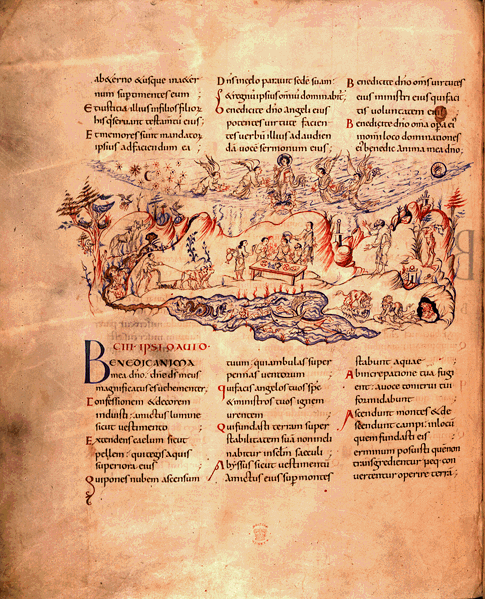 abaeterno &usque inaeter
num sup timentes eum ;
E t iusticia illius infilios filior
his q seruant testamtu eius ;
E t memores sunt mandator
ipsius adfaciendum ea ;
D ns incelo parauit sede suam
& regnu ipsius omiu dominabit ;
B enedicite dno angeli eius
potentes uirtute facien
tes uerbu illius ad audien
da uoce sermonum eius ;
B enedicite dno oms uirtutes
eius ministri eius quifaci
tis uoluntatem ei
B enedicite dno oma opa ei
inomi loco dominationes
ei benedic anima mea dno ;
CIII IPSI DAUID
BENEDIC ANIMA
mea dno . dne ds meus
magnificatus es uehementer ;
C onfessionem & decorem
induisti : amictus lumine
sicut uestimento
E xtendens caelum sicut
pellem : qui tegis aquis
superiora eius
Q ui ponis nubem ascensum
tuum : qui ambulas super
pennas uentorum
Q ui facis angelos tuos spc
& ministros tuos ignem
urentem
Q ui fundasti terram super
stabilitatem sua non incli
nabitur in sclm saeculi
A byssus sicut uestimentu
amictus eius sup montes
stabunt aquae
A b increpatione tua fugi
ent : a uoce tonitrui tui
formidabunt
A scendunt montes & de
scendunt campi : in locu
quem fundasti eis
T erminum posuisti que non
transgredientur neq con
uertentur operire terra ;